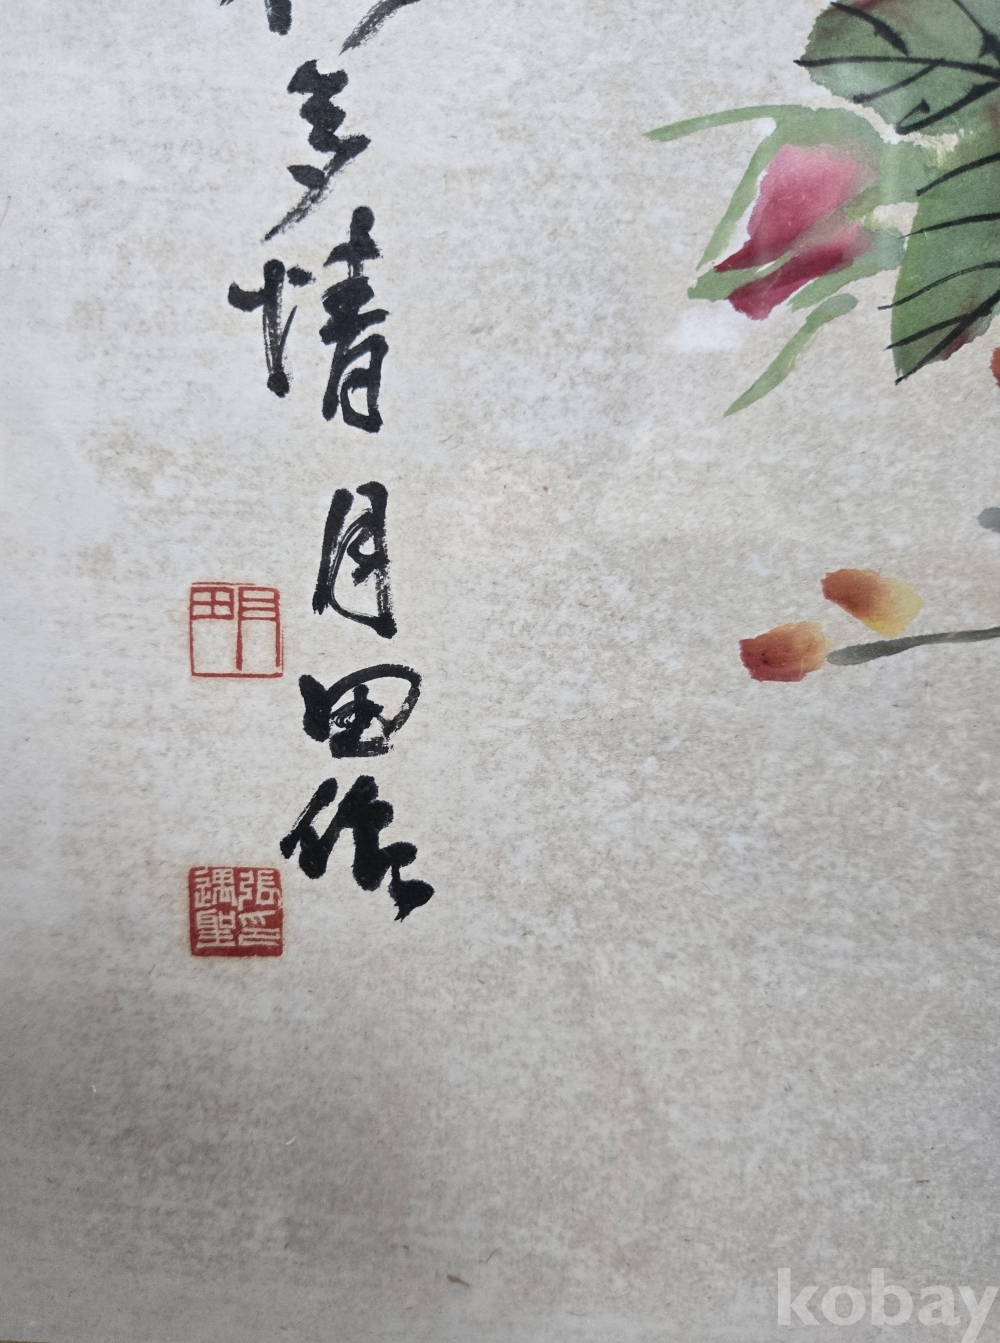 多情月田作
月田
張印遇聖
kobay